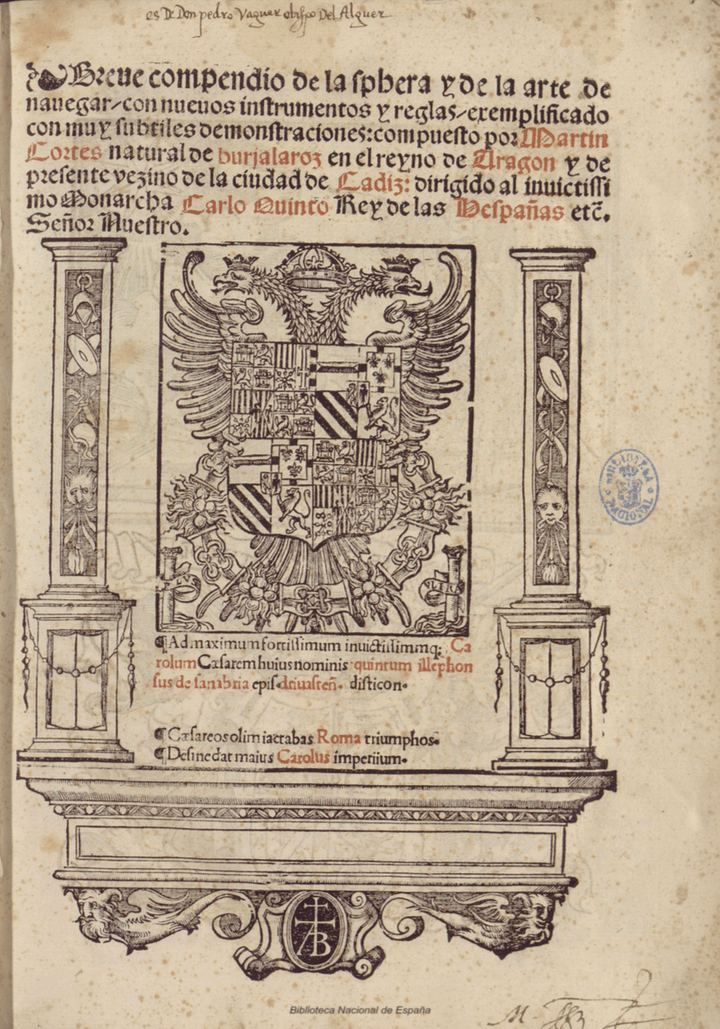 es De Don pedro Vaguer obispo Del Alguer
Breue compendio de la sphera y de la arte de
nauegar/con nueuos instrumentos y reglas/exemplificado
con muy subtiles demonstraciones:compuesto por Martin
Cortes natural de burjalaroz en el reyno de Aragon y de
presente vezino de la ciudad de Cadiz: dirigido al inuictissi
mo Monarcha Carlo Quinto Rey de las Hespañas etc̃.
Señor Nuestro.
¶Ad maximum fortissimum inuictissimmq; Ca
rolum Cæsarem huius nominis quintum illephon
sus de sanabria epis. driuasteñ. disticon.
¶Cæsareos olim iactabas Roma triumphos.
¶Desine dat maius Carolus imperiium.
AB
Biblioteca Nacional de España